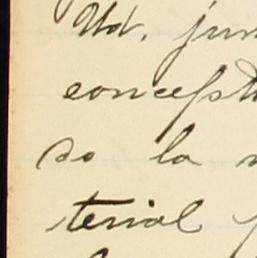 Ud. jun
concept
so la
terial